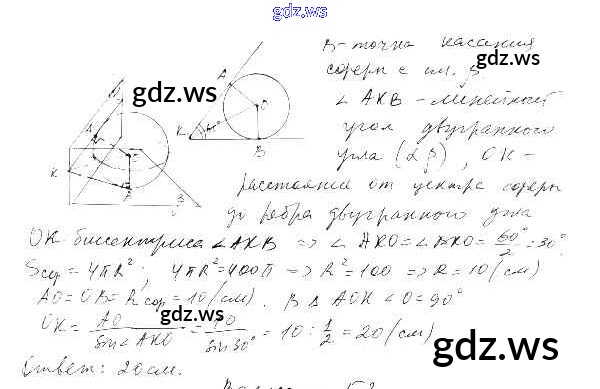 gdz.ws
B - точка касания
сферы с пл. β
∠AKB - линейный
угол двугранного
угла (αβ), OK -
расстояние от центра сферы
до ребра двугранного угла
OK биссектриса ∠AKB => ∠AKO = ∠BKO = 60°/2 = 30°.
Sсф = 4πR²; 4πR² = 400π => R² = 100 => R = 10 (см)
AO = OB = Rсф = 10 (см). В Δ AOK ∠O = 90°
OK = AO/sin∠AKO = 10/sin30° = 10 : 1/2 = 20 (см)
Ответ: 20 см.
gdz.ws
gdz.ws
gdz.ws
gdz.ws
A
O
K
60°
B
K
B